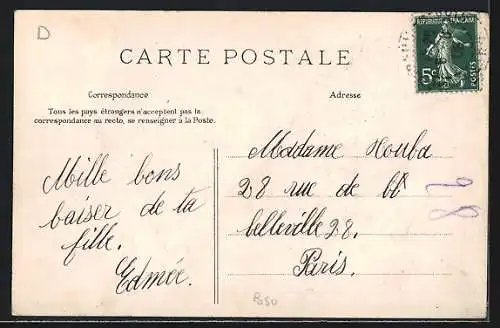 D
CARTE POSTALE
RÉPUBLIQUE FRANÇAISE
5c
POSTES
Correspondance
Adresse
Tous les pays étrangers n'acceptent pas la
correspondance au recto, se renseigner à la Poste.
Mille bons
baiser de ta
fille.
Edmée.
Madame Houba
28 rue de
belleville 28.
Paris.
28